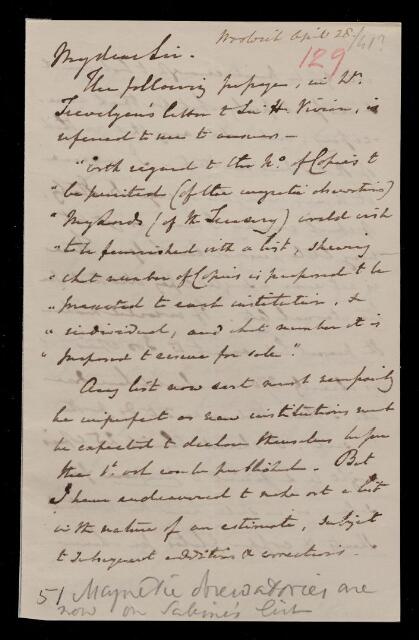 Woolwich April 28/41?
129
My dear Sir.
The following passage, in Mr.
Trevelyan's letter to Sir H. Vivian, is
referred to me to answer —
"With regard to the No. of Copies to
"be printed (of the magnetic observations)
"My Lords (of the Treasury) would wish
"to be furnished with a list, shewing
"what number of Copies is proposed to be
"presented to each institution, &
"individual, and what number it is
"proposed to reserve for sale."
Any list now sent must necessarily
be imperfect as new institutions must
be expected to declare themselves before
the 1st vol. can be published. But
I have endeavoured to make out a list
in the nature of an estimate, subject
to subsequent additions & corrections.
51 Magnetic observatories are
now on Sabine's list